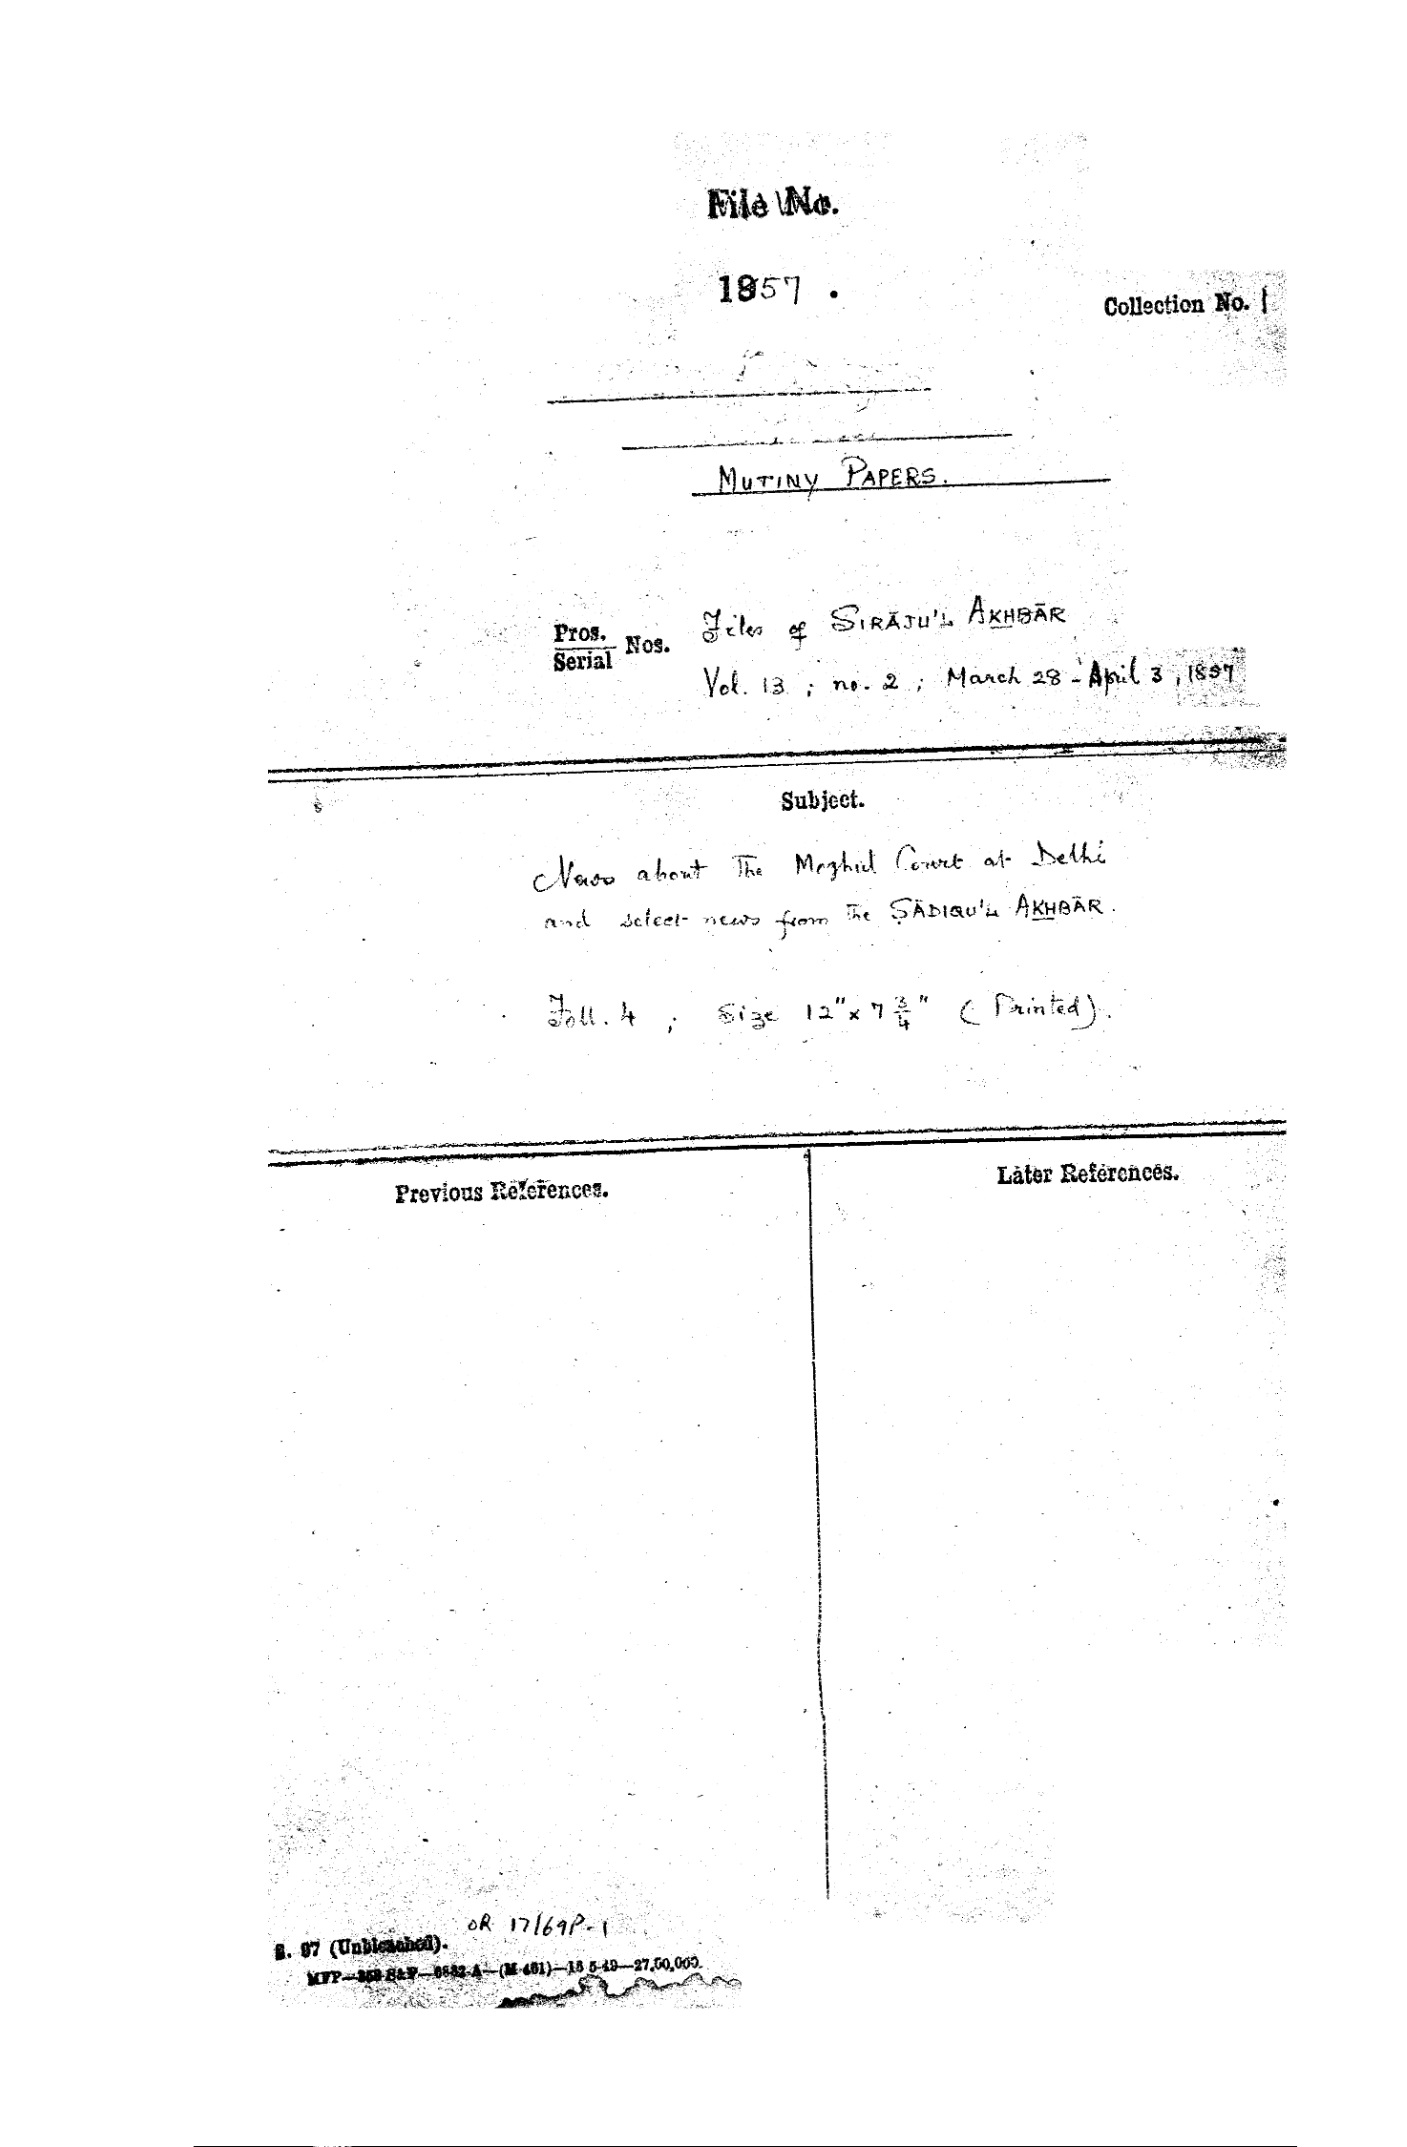 File No.
1857 .
Collection No. 1
MUTINY PAPERS.
Pros. / Serial Nos.
Files of SIRĀJU'L AKHBĀR
Vol. 13 ; no. 2 ; March 28 - April 3, 1857
Subject.
News about The Moghul Court at Delhi
and select news from The ṢĀDIQU'L AKHBĀR.
Foll. 4 ; Size 12" x 7 3/4" (Printed).
Previous References.
Later References.
OR 17/69P-1
S. 97 (Unbleached).